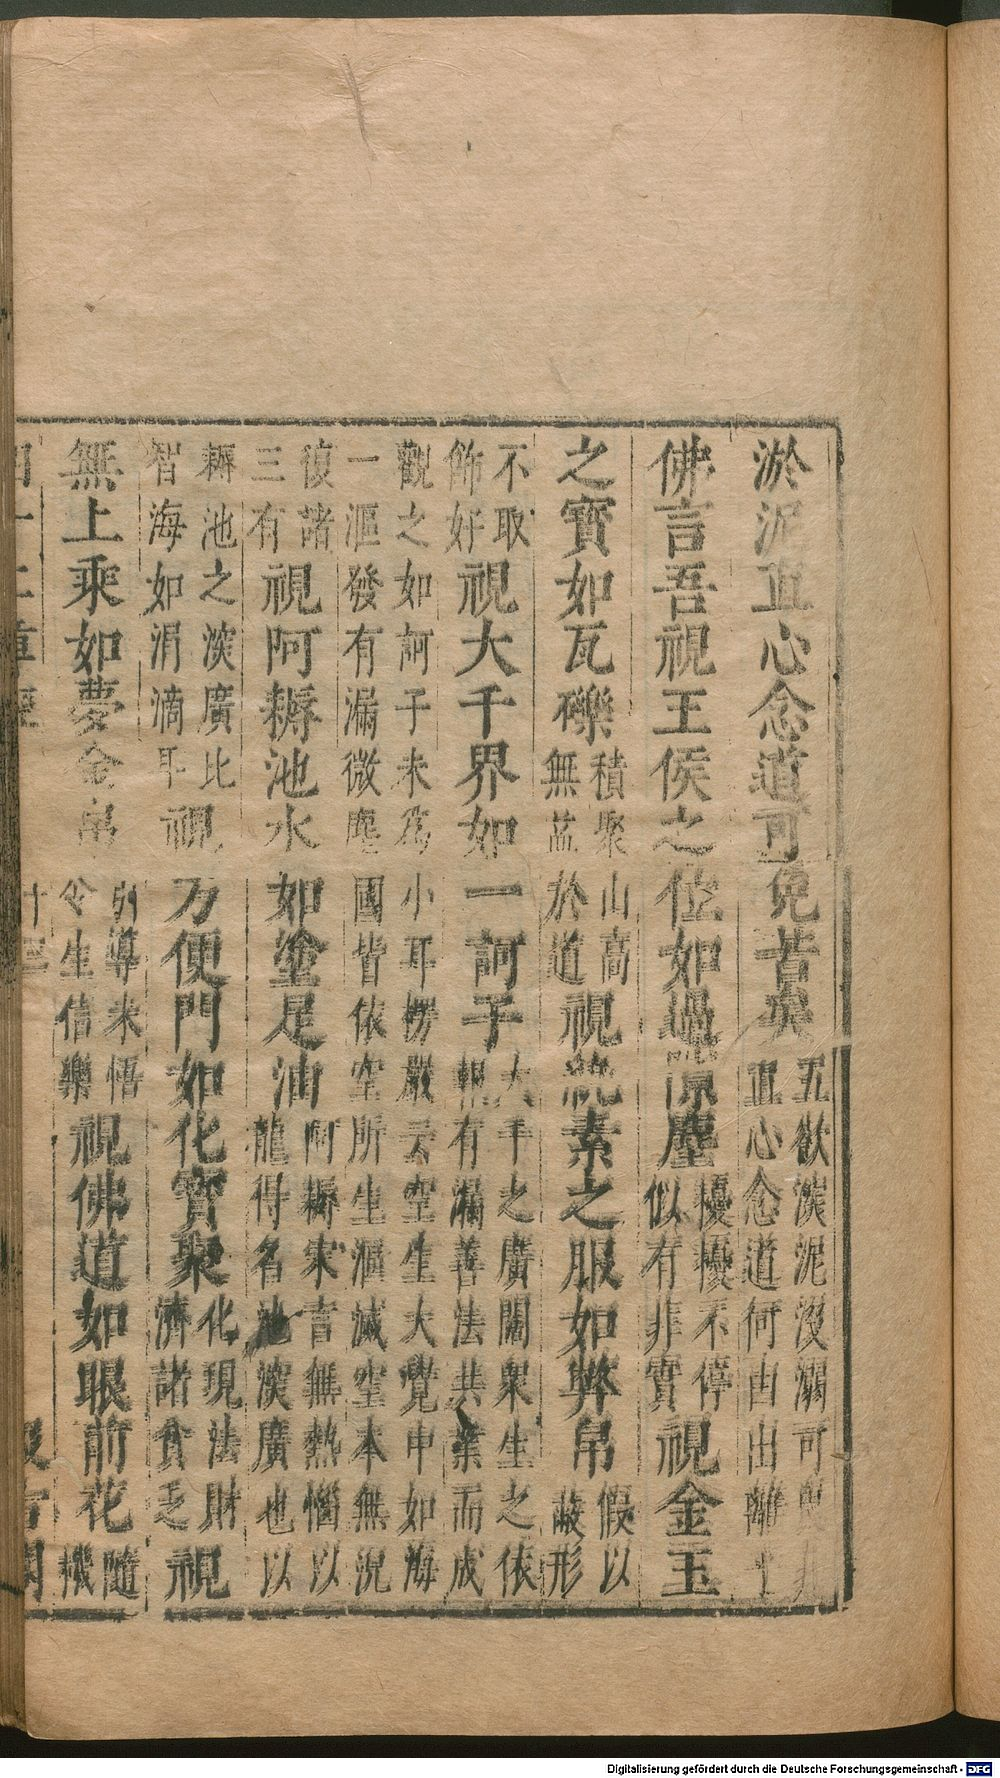 淤泥直心念道可免苦矣五欲淤泥沒溺可
直心念道何由出離
佛言吾視王侯之位如過隙塵擾擾不停似有非實視金玉
之寶如瓦礫積聚山高無益於道視紈素之服如弊帛假以蔽形
不取飾好視大千界如一訶子大千之廣闊眾生之依報有漏善法共業而成
觀之如訶子未為小耳楞嚴云空生大覺中如海
一漚發有漏微塵國皆依空所生漚滅空本無況
復諸三有視阿耨池水如塗足油阿耨家言無熱惱以龍得名池淤廣也以
耨池之淤廣比智海如涓滴耳視方便門如化寶聚化現法財濟諸貧乏視
無上乘如夢金帛引導未悟令生信樂視佛道如眼前花隨機
四十二章經
十
Digitalisierung gefördert durch die Deutsche Forschungsgemeinschaft - DFG